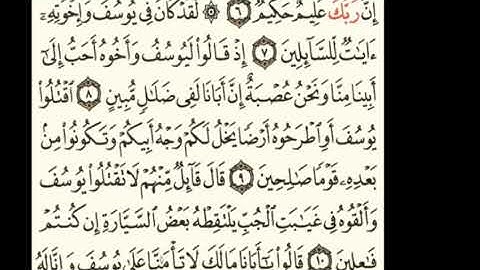 إِنَّ رَبَّكَ عَلِيمٌ حَكِيمٌ ٦ ۞ لَّقَدْ كَانَ فِي يُوسُفَ وَإِخْوَتِهِۦٓ
ءَايَٰتٌ لِّلسَّآئِلِينَ ٧ إِذْ قَالُوا۟ لَيُوسُفُ وَأَخُوهُ أَحَبُّ إِلَىٰٓ
أَبِينَا مِنَّا وَنَحْنُ عُصْبَةٌ إِنَّ أَبَانَا لَفِي ضَلَٰلٍ مُّبِينٍ ٨ ٱقْتُلُوا۟
يُوسُفَ أَوِ ٱطْرَحُوهُ أَرْضًا يَخْلُ لَكُمْ وَجْهُ أَبِيكُمْ وَتَكُونُوا۟ مِنۢ
بَعْدِهِۦ قَوْمًا صَٰلِحِينَ ٩ قَالَ قَآئِلٌ مِّنْهُمْ لَا تَقْتُلُوا۟ يُوسُفَ
وَأَلْقُوهُ فِي غَيَٰبَتِ ٱلْجُبِّ يَلْتَقِطْهُ بَعْضُ ٱلسَّيَّارَةِ إِن كُنتُمْ
فَٰعِلِينَ ١٠ قَالُوا۟ يَٰٓأَبَانَا مَا لَكَ لَا تَأْمَ۫نَّا عَلَىٰ يُوسُفَ وَإِنَّا لَهُۥ